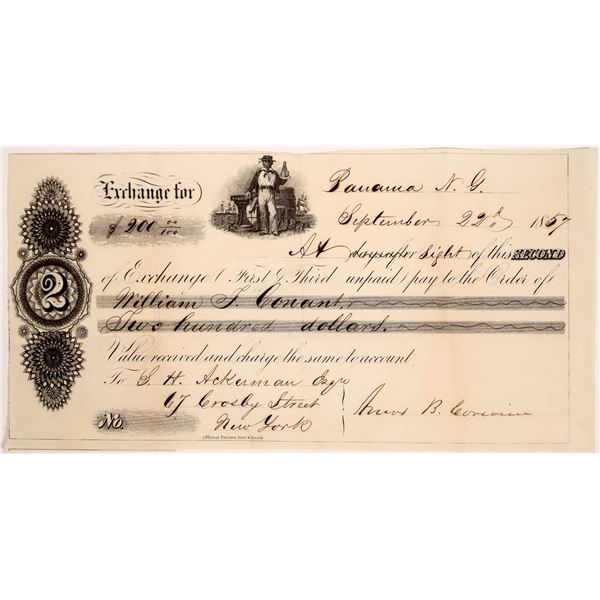 Exchange for
$200 00/100
Panama N. G.
September 22d 1857
At days after Sight of this SECOND
of Exchange (First & Third unpaid) pay to the Order of
William T. Conant.
Two hundred dollars.
Value received and charge the same to account
To S. H. Ackerman Esqr
67 Crosby Street
New York
Amos B. Corwine
No.
2
Office of Panama Star & Herald.